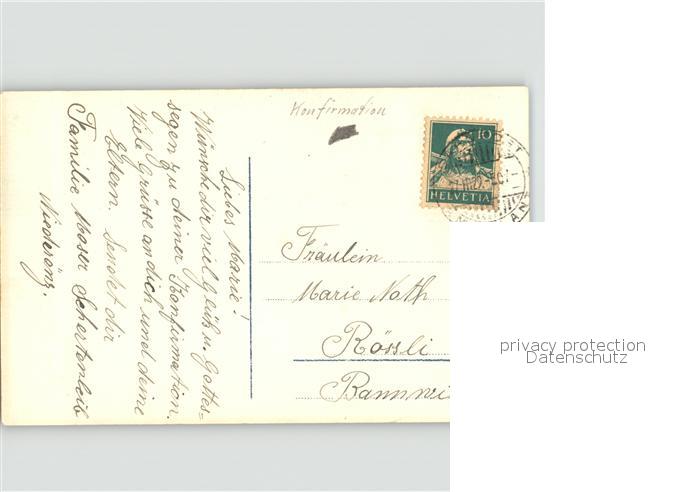 Konfirmation
10
HELVETIA
Liebes Marie!
Wünsche dir viel Glück u. Gottes=
segen zu deiner Konfirmation.
Viele Grüsse an dich und deine
Eltern. Sendet dir
Familie Moser Schertenleib
Niederönz.
Fräulein
Marie Noth
Rössli
Bannwi
privacy protection
Datenschutz